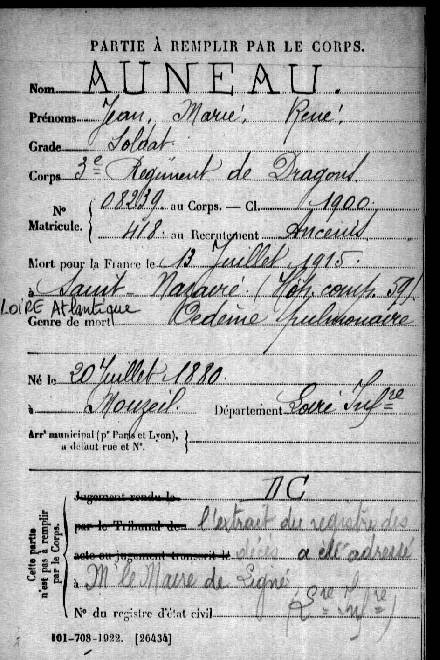 PARTIE À REMPLIR PAR LE CORPS.
Nom AUNEAU.
Prénoms Jean, Marie, René,
Grade Soldat
Corps 3e Régiment de Dragons
N° Matricule. { 08239 au Corps. — Cl. 1900
418 au Recrutement Ancenis
Mort pour la France le 13 Juillet 1915
à Saint-Nazaire (Hôp. comp. 59)
LOIRE Atlantique
Genre de mort Œdème pulmonaire
Né le 20 Juillet 1880
à Mouzeil Département Loire Infre
Arrt municipal (pr Paris et Lyon), à défaut rue et N°.
Cette partie n'est pas à remplir par le Corps.
Jugement rendu le DC
par le Tribunal de l'extrait du registre des
acte ou jugement transcrit le décès a été adressé
à Mr le Maire de Ligné
N° du registre d'état civil (Lre Infre)
101-708-1922. [26434]